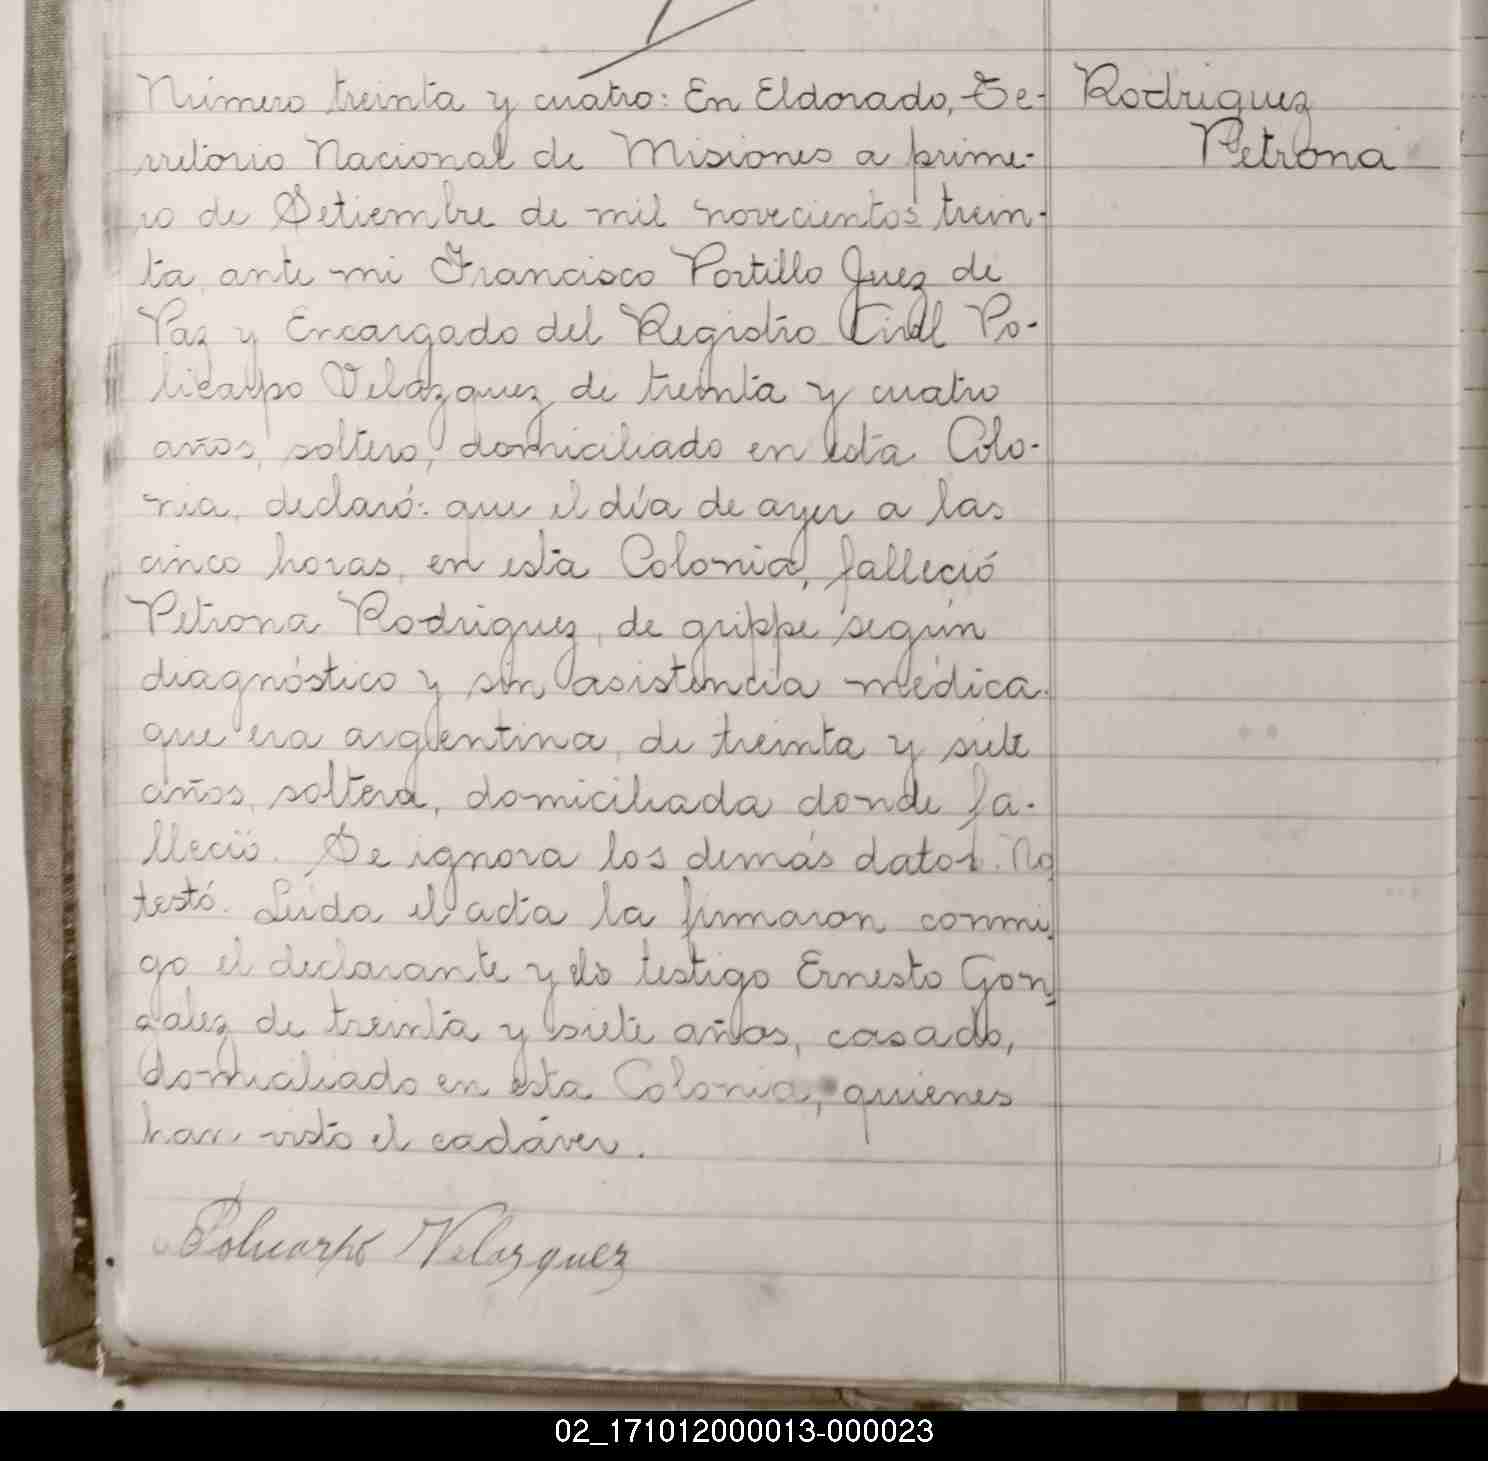 Número treinta y cuatro: En Eldorado, Te-
rritorio Nacional de Misiones a prime-
ro de Setiembre de mil novecientos trein-
ta, ante mi Francisco Portillo Juez de
Paz y Encargado del Registro Civil Po-
licarpo Velázquez de treinta y cuatro
años, soltero, domiciliado en esta Colo-
nia, declaró: que el día de ayer a las
cinco horas, en esta Colonia, falleció
Petrona Rodriguez, de grippe según
diagnóstico y sin asistencia médica.
que era argentina, de treinta y siete
años, soltera, domiciliada donde fa-
lleció. Se ignora los demás datos. No
testó. Leida el acta la firmaron conmi-
go el declarante y el testigo Ernesto Gon-
zalez de treinta y siete años, casado,
domiciliado en esta Colonia, quienes
han visto el cadáver.
Policarpo Velazquez
Rodriguez
Petrona
02_171012000013-000023